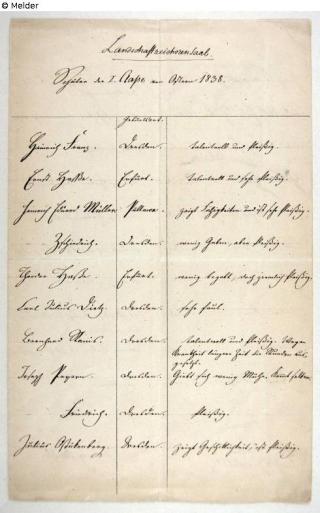 © Melder
Landschaftzeichnensaal.
Schüler der I. Classe um Ostern 1838.
Geburtsort.
Heinrich Franz. Dresden. talentvoll und fleißig.
Ernst Hasse. Erfurt. talentvoll und sehr fleißig.
Heinrich Eduard Müller. zeigt Fähigkeiten und ist sehr fleißig.
Dresden. wenig Gaben, aber fleißig.
Theodor Hasse. Erfurt. wenig begabt, doch ziemlich fleißig.
Carl Julius Dietz. Dresden. sehr faul.
Bernhard Dresden. talentvoll und fleißig. Wegen
Krankheit längere Zeit die Stunden aus-
gesetzt.
Joseph Dresden. Giebt sich wenig Mühe. Kömt selten.
Friedrich. Dresden. fleißig.
Julius Dresden. zeigt Geschicklichkeit, ist fleißig.